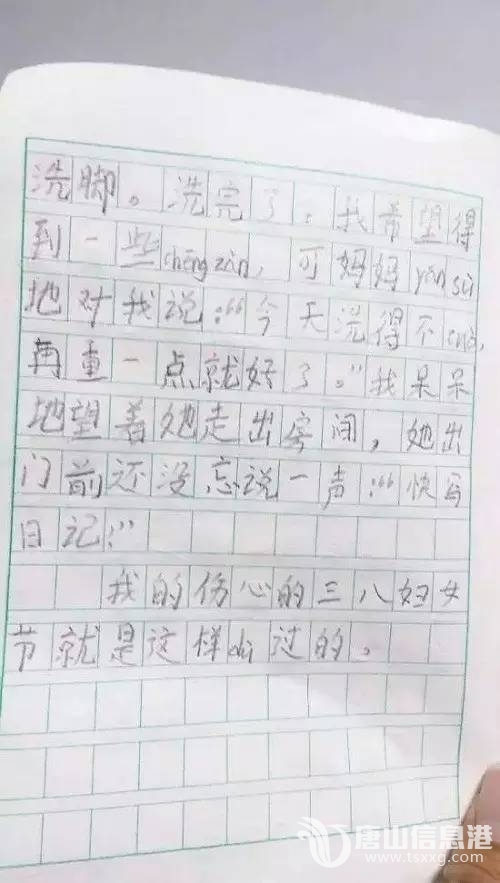 洗脚。洗完了,我希望得
到一些chēngzàn,可妈妈yánsù
地对我说:“今天洗得不cuò,
再重一点就好了。”我呆呆
地望着她走出房间,她出
门前还没忘说一声:“快写
日记!”
我的伤心的三八妇女
节就是这样dù过的。
唐山信息港
www.tsxxg.com